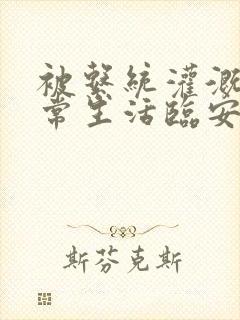 被繫統灌溉
常生活臨安
斯芬克斯